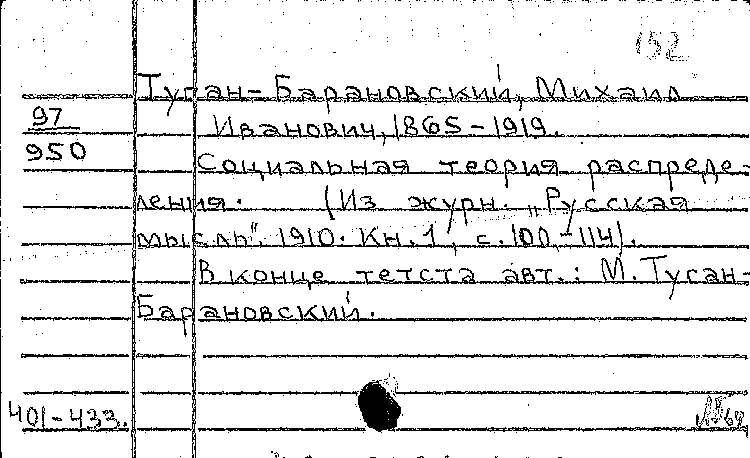 152
Туган-Барановский, Михаил
97
Иванович, 1865-1919.
950
Социальная теория распреде-
ления. (Из журн. „Русская
мысль". 1910. Кн. 1, с. 100-114).
В конце тетста авт.: М. Туган-
Барановский.
401-433.